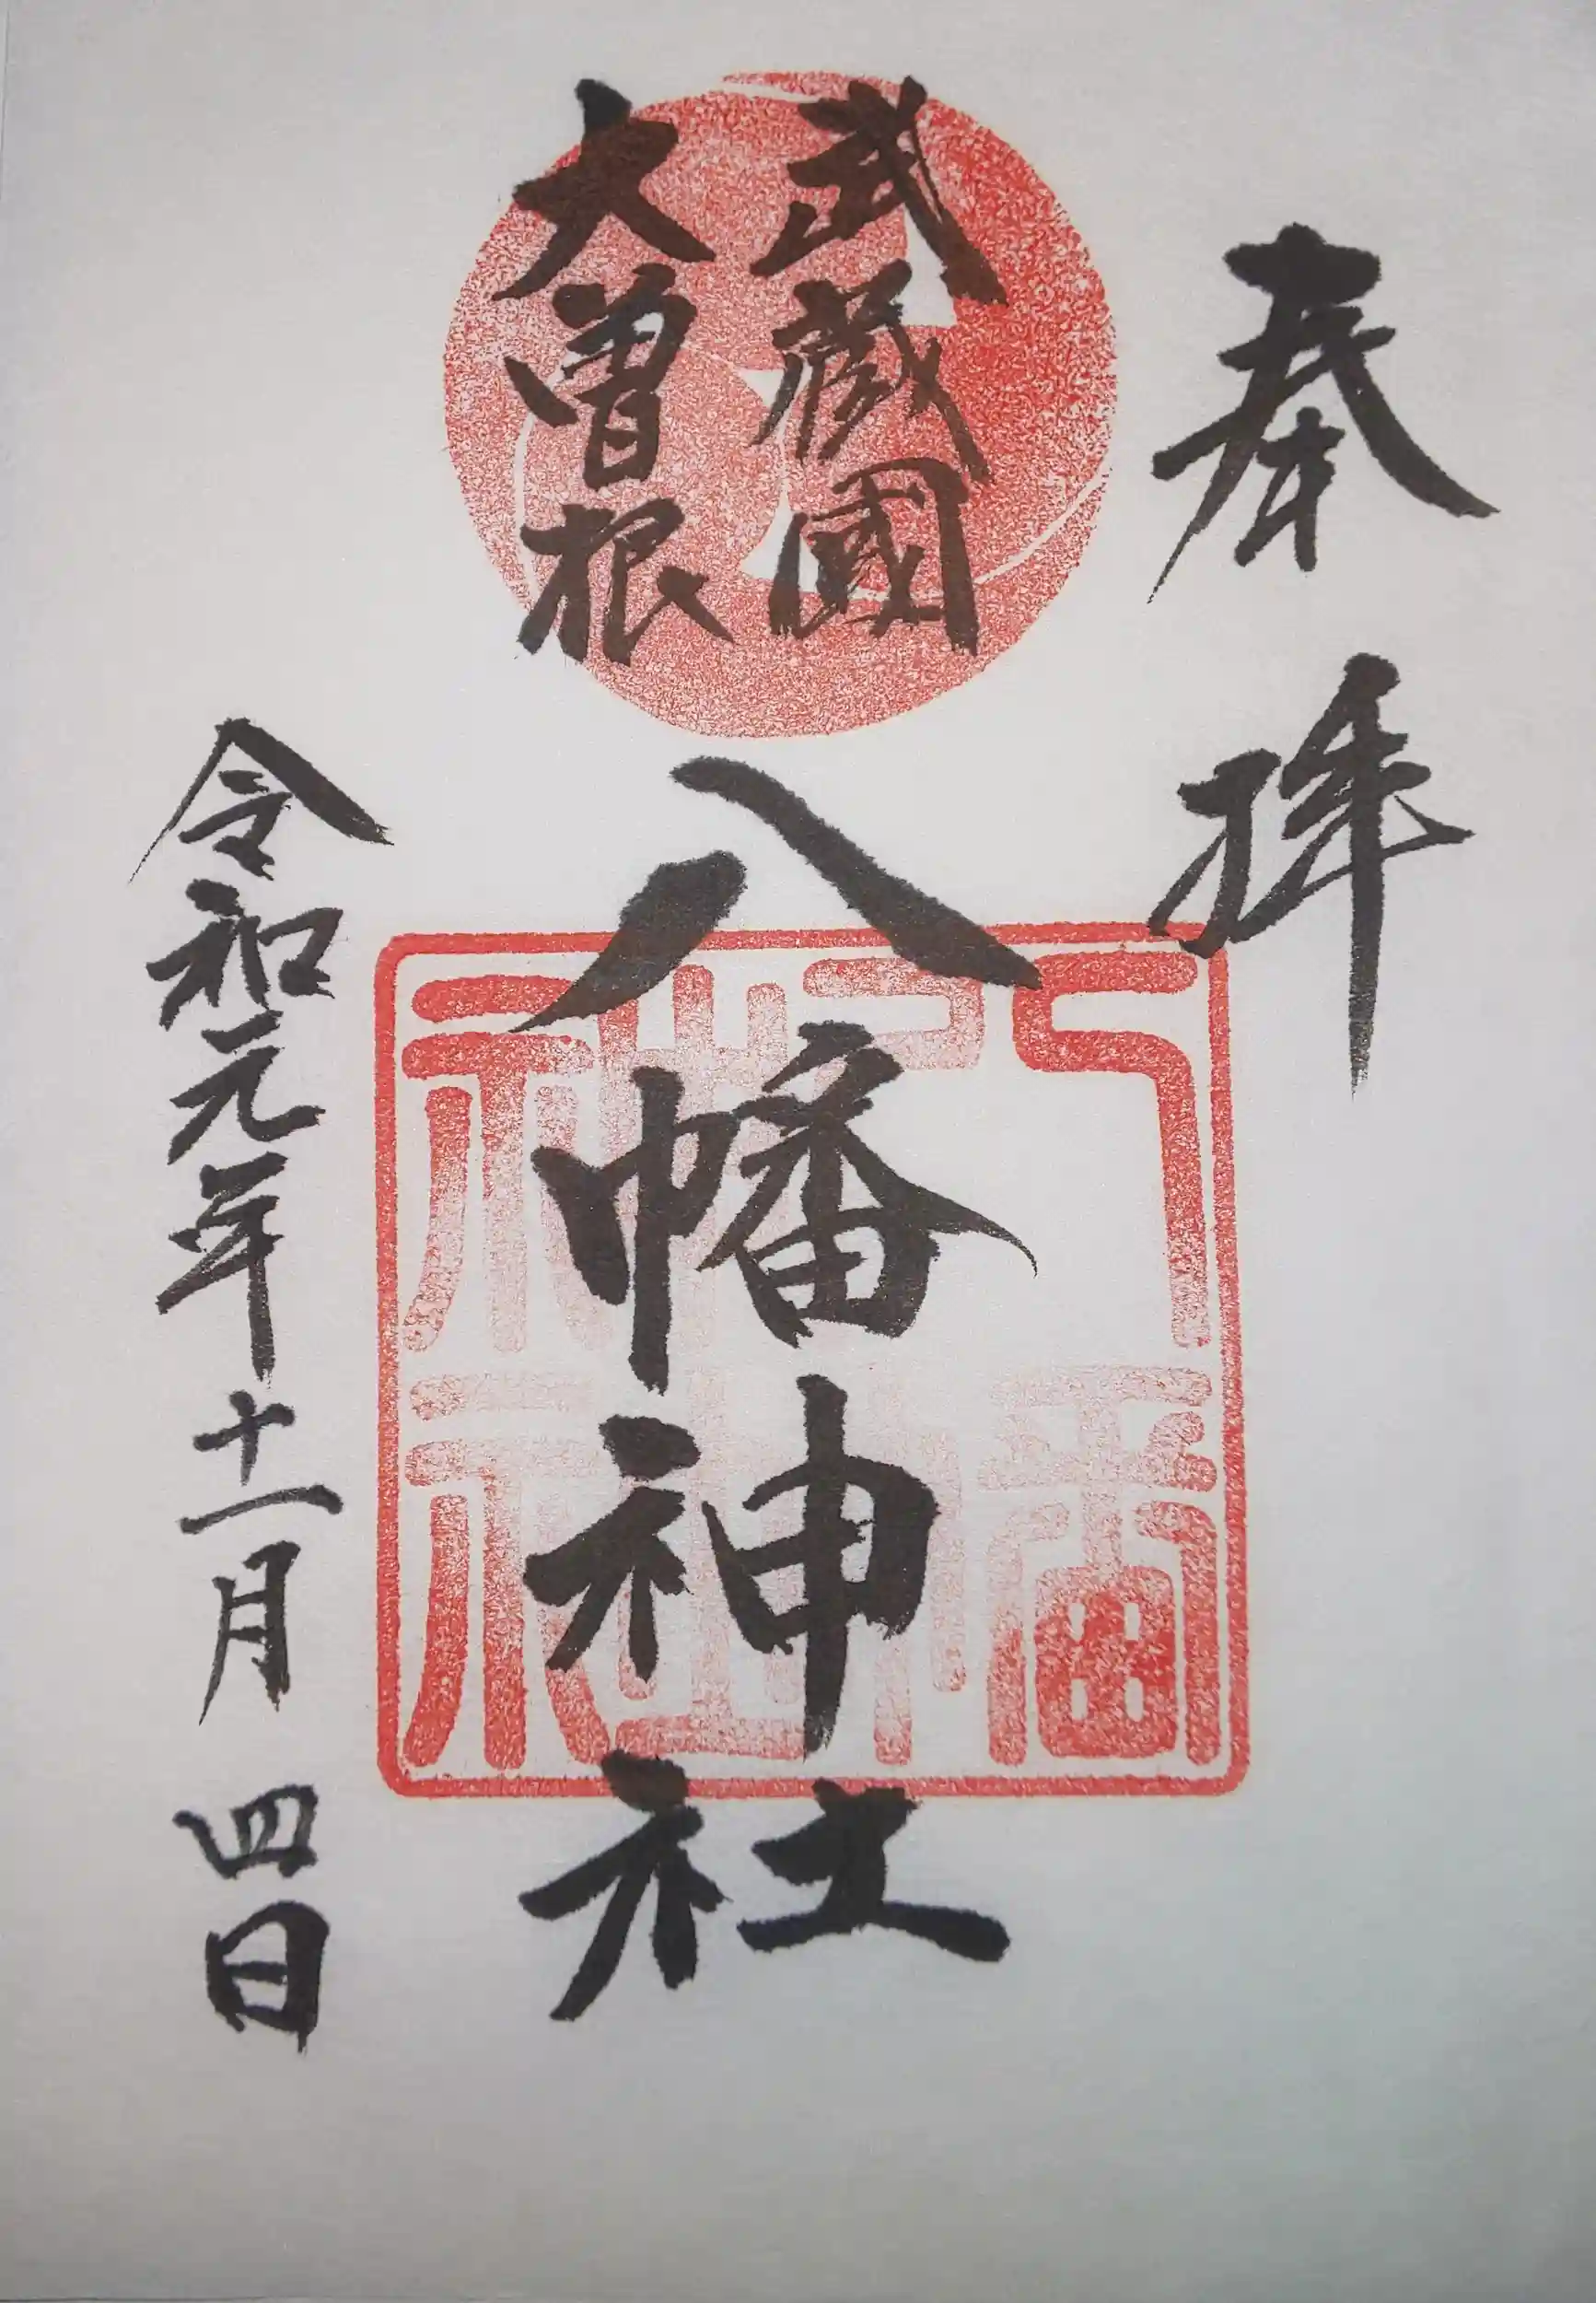 奉拝
武蔵國
大曽根
八幡神社
八幡
神社
令和元年十一月四日